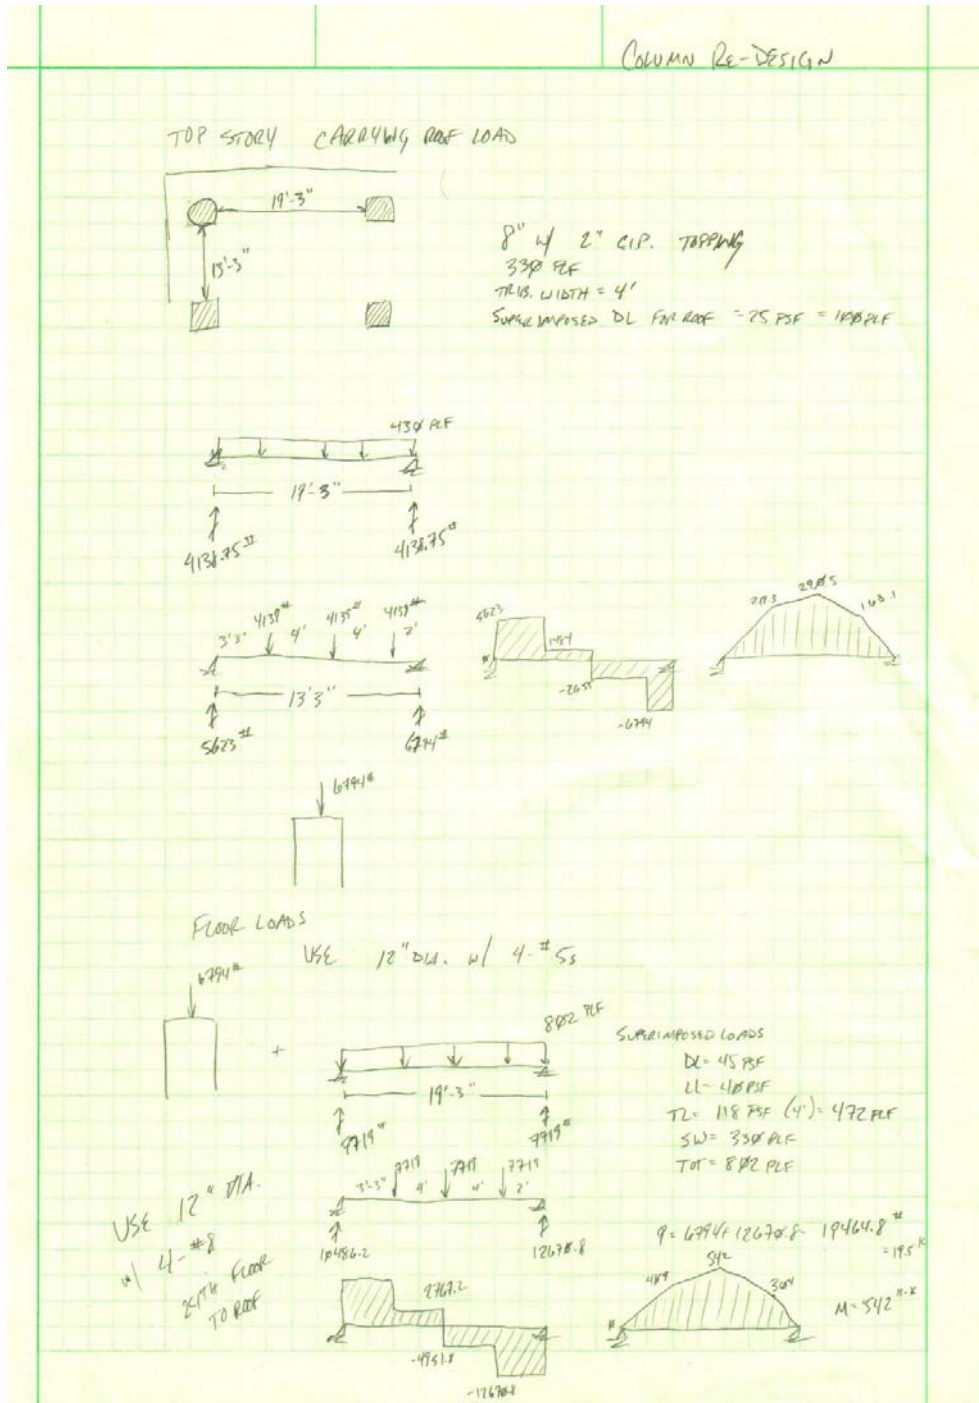 COLUMN RE-DESIGN
TOP STORY CARRYING ROOF LOAD
19'-3"
13'-3"
8" w/ 2" C.I.P. TOPPING
330 PLF
TRIB. WIDTH = 4'
SUPERIMPOSED DL FOR ROOF = 25 PSF = 100 PLF
430 PLF
19'-3"
4138.75#
4138.75#
3'3" 4139# 4' 4139# 4' 4139# 2'
13'3"
5623#
6794#
5623
1484
-2655
-6794
290.5
163.1
6794#
FLOOR LOADS
USE 12" DIA. w/ 4-#5s
6794#
+
802 PLF
19'-3"
7719#
7719#
SUPERIMPOSED LOADS
DL= 45 PSF
LL= 40 PSF
TL= 118 PSF (4') = 472 PLF
SW= 330 PLF
TOT= 802 PLF
3'-3" 7719 4' 7719 4' 7719 2'
10486.2
12670.8
USE 12" DIA.
w/ 4-#8
24TH FLOOR
TO ROOF
2767.2
-4951.8
-12670.8
P= 6794+12670.8= 19464.8#
= 19.5K
409
542
304
M= 542"-K